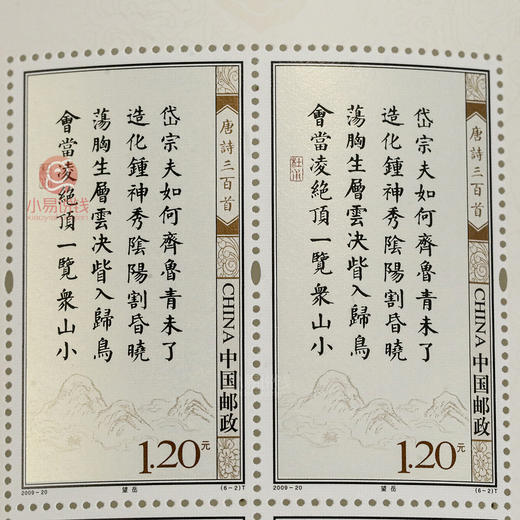 唐詩三百首
岱宗夫如何齊魯青未了
造化鍾神秀陰陽割昏曉
蕩胸生層雲决眥入歸鳥
會當凌絶頂一覽衆山小
CHINA 中国邮政
1.20元
2009-20
望岳
(6-2)T
唐詩三百首
岱宗夫如何齊魯青未了
造化鍾神秀陰陽割昏曉
蕩胸生層雲决眥入歸鳥
會當凌絶頂一覽衆山小
杜甫
CHINA 中国邮政
1.20元
2009-20
望岳
(6-2)T